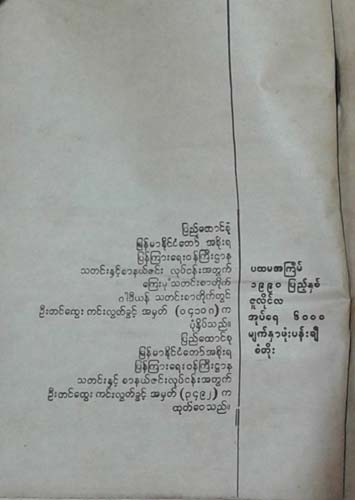 ပြည်ထောင်စု
မြန်မာနိုင်ငံတော် အစိုးရ
ပြန်ကြားရေးဝန်ကြီးဌာန
သတင်းနှင့်စာနယ်ဇင်း လုပ်ငန်းအတွက်
ကြေးမုံ သတင်းစာတိုက်
ဂါဒီယန် သတင်းစာတိုက်တွင်
ဦးတင်ထွေး ကင်းလွတ်ခွင့် အမှတ် (၀၄၁၀၁) က
ပုံနှိပ်သည်။
ပြည်ထောင်စု
မြန်မာနိုင်ငံတော်အစိုးရ
ပြန်ကြားရေးဝန်ကြီးဌာန
သတင်းနှင့် စာနယ်ဇင်းလုပ်ငန်းအတွက်
ဦးတင်ထွေး ကင်းလွတ်ခွင့် အမှတ် (၃၄၉၂) က
ထုတ်ဝေသည်။
ပထမအကြိမ်
၁၉၉၀ ပြည့်နှစ်
ဇူလိုင်လ
အုပ်ရေ ၆၀၀၀
မျက်နှာဖုံးပန်းချီ
စံတိုး